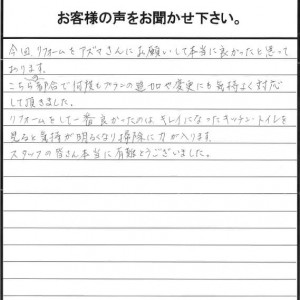 お客様の声をお聞かせ下さい。
今回、リフォームをアズマさんにお願いして本当に良かったと思って
おります。
こちらの都合で何度もプランの追加や変更にも気持よく対応
して頂きました。
リフォームをして一番良かったのは、キレイになったキッチン・トイレを
見ると気持が明るくなり掃除に力が入ります。
スタッフの皆さん本当に有難とうございました。